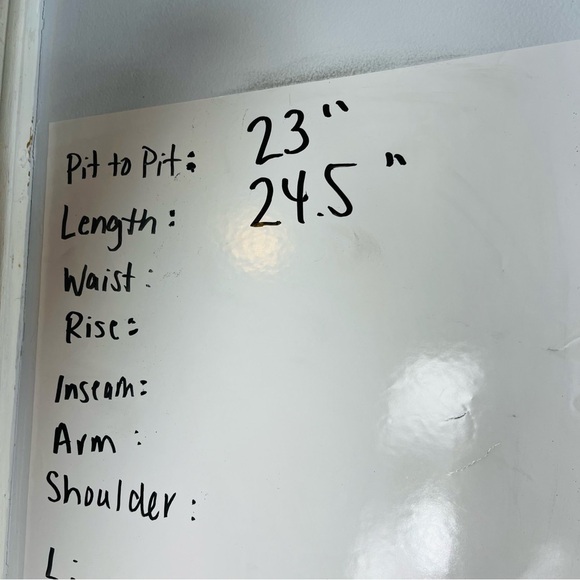 Pit to Pit: 23"
Length: 24.5"
Waist:
Rise:
Inseam:
Arm:
Shoulder: